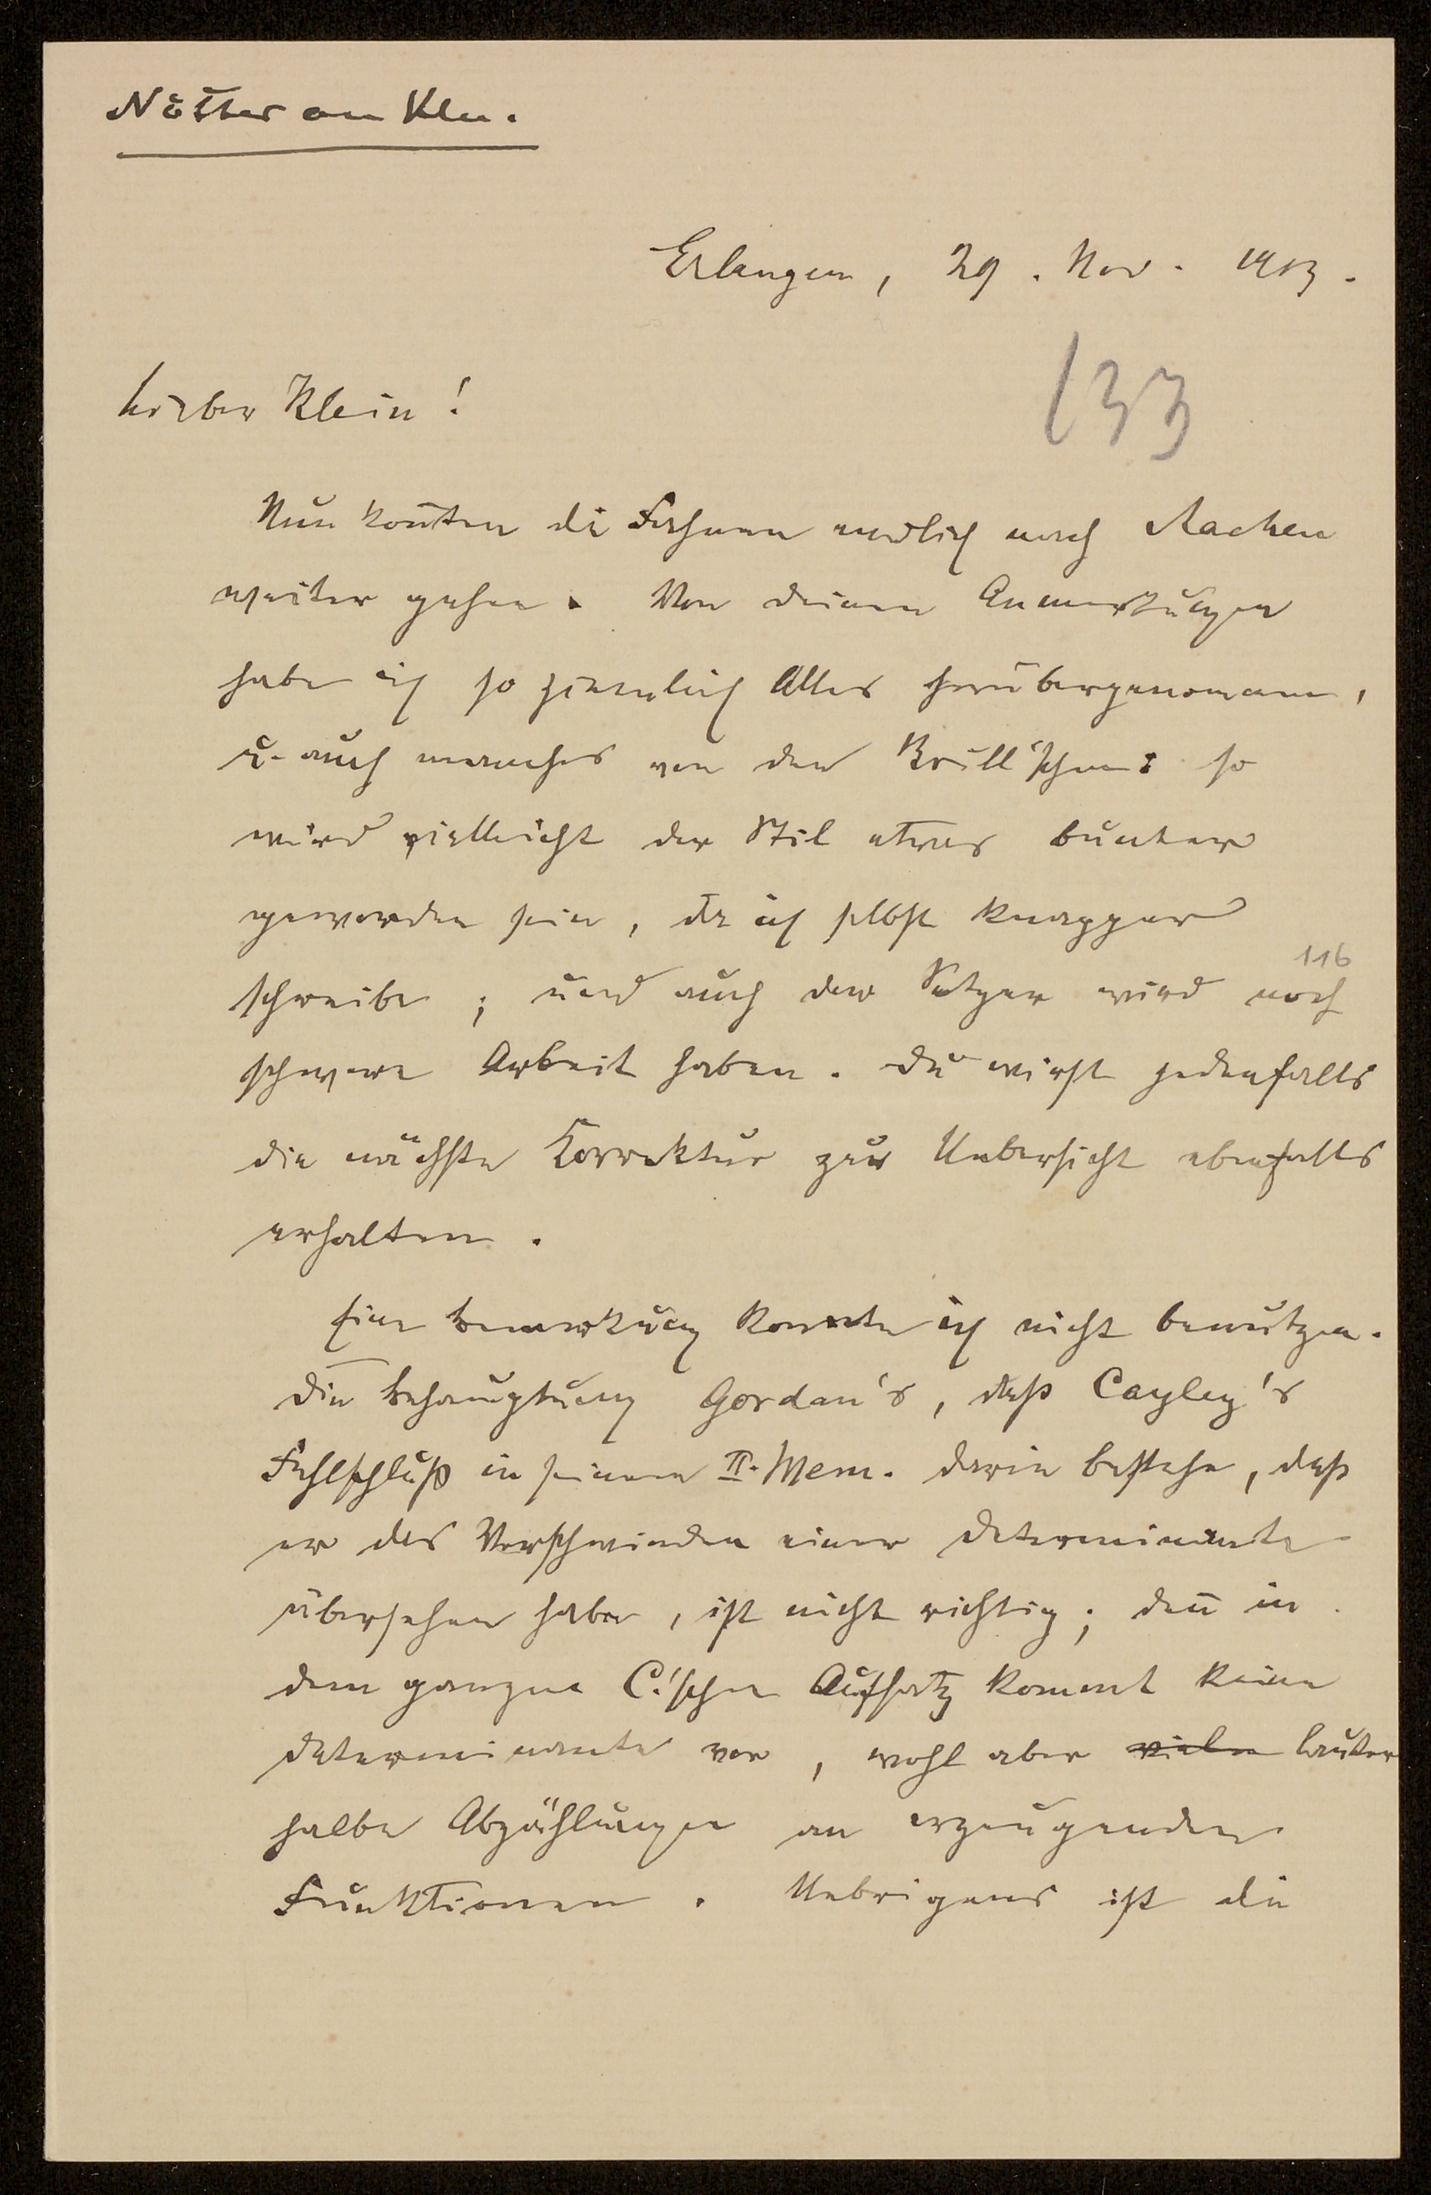 Nöther an Klein.
Erlangen, 29. Nov. 1913.
133
Lieber Klein!
Nun konnten die Fahnen endlich nach Aachen
weiter gehen. Von deinen Anmerkungen
habe ich so ziemlich Alles herübergenommen,
u. auch manches von den Brill'schen: so
wird vielleicht der Stil etwas bunter
geworden sein, da ich selbst knapper
116
schreibe; und auch der Setzer wird noch
schwere Arbeit haben. Du wirst jedenfalls
die nächste Korrektur zur Uebersicht ebenfalls
erhalten.
Eine Bemerkung konnte ich nicht benutzen.
Die Behauptung Gordan's, daß Cayley's
Fehlschluß in seinem II. Mem. darin bestehe, daß
er das Verschwinden einer Determinante
übersehen habe, ist nicht richtig; denn in
dem ganzen C.'schen Aufsatz kommt keine
Determinante vor, wohl aber viele lauter
halbe Abzählungen an erzeugenden
Funktionen. Uebrigens ist die